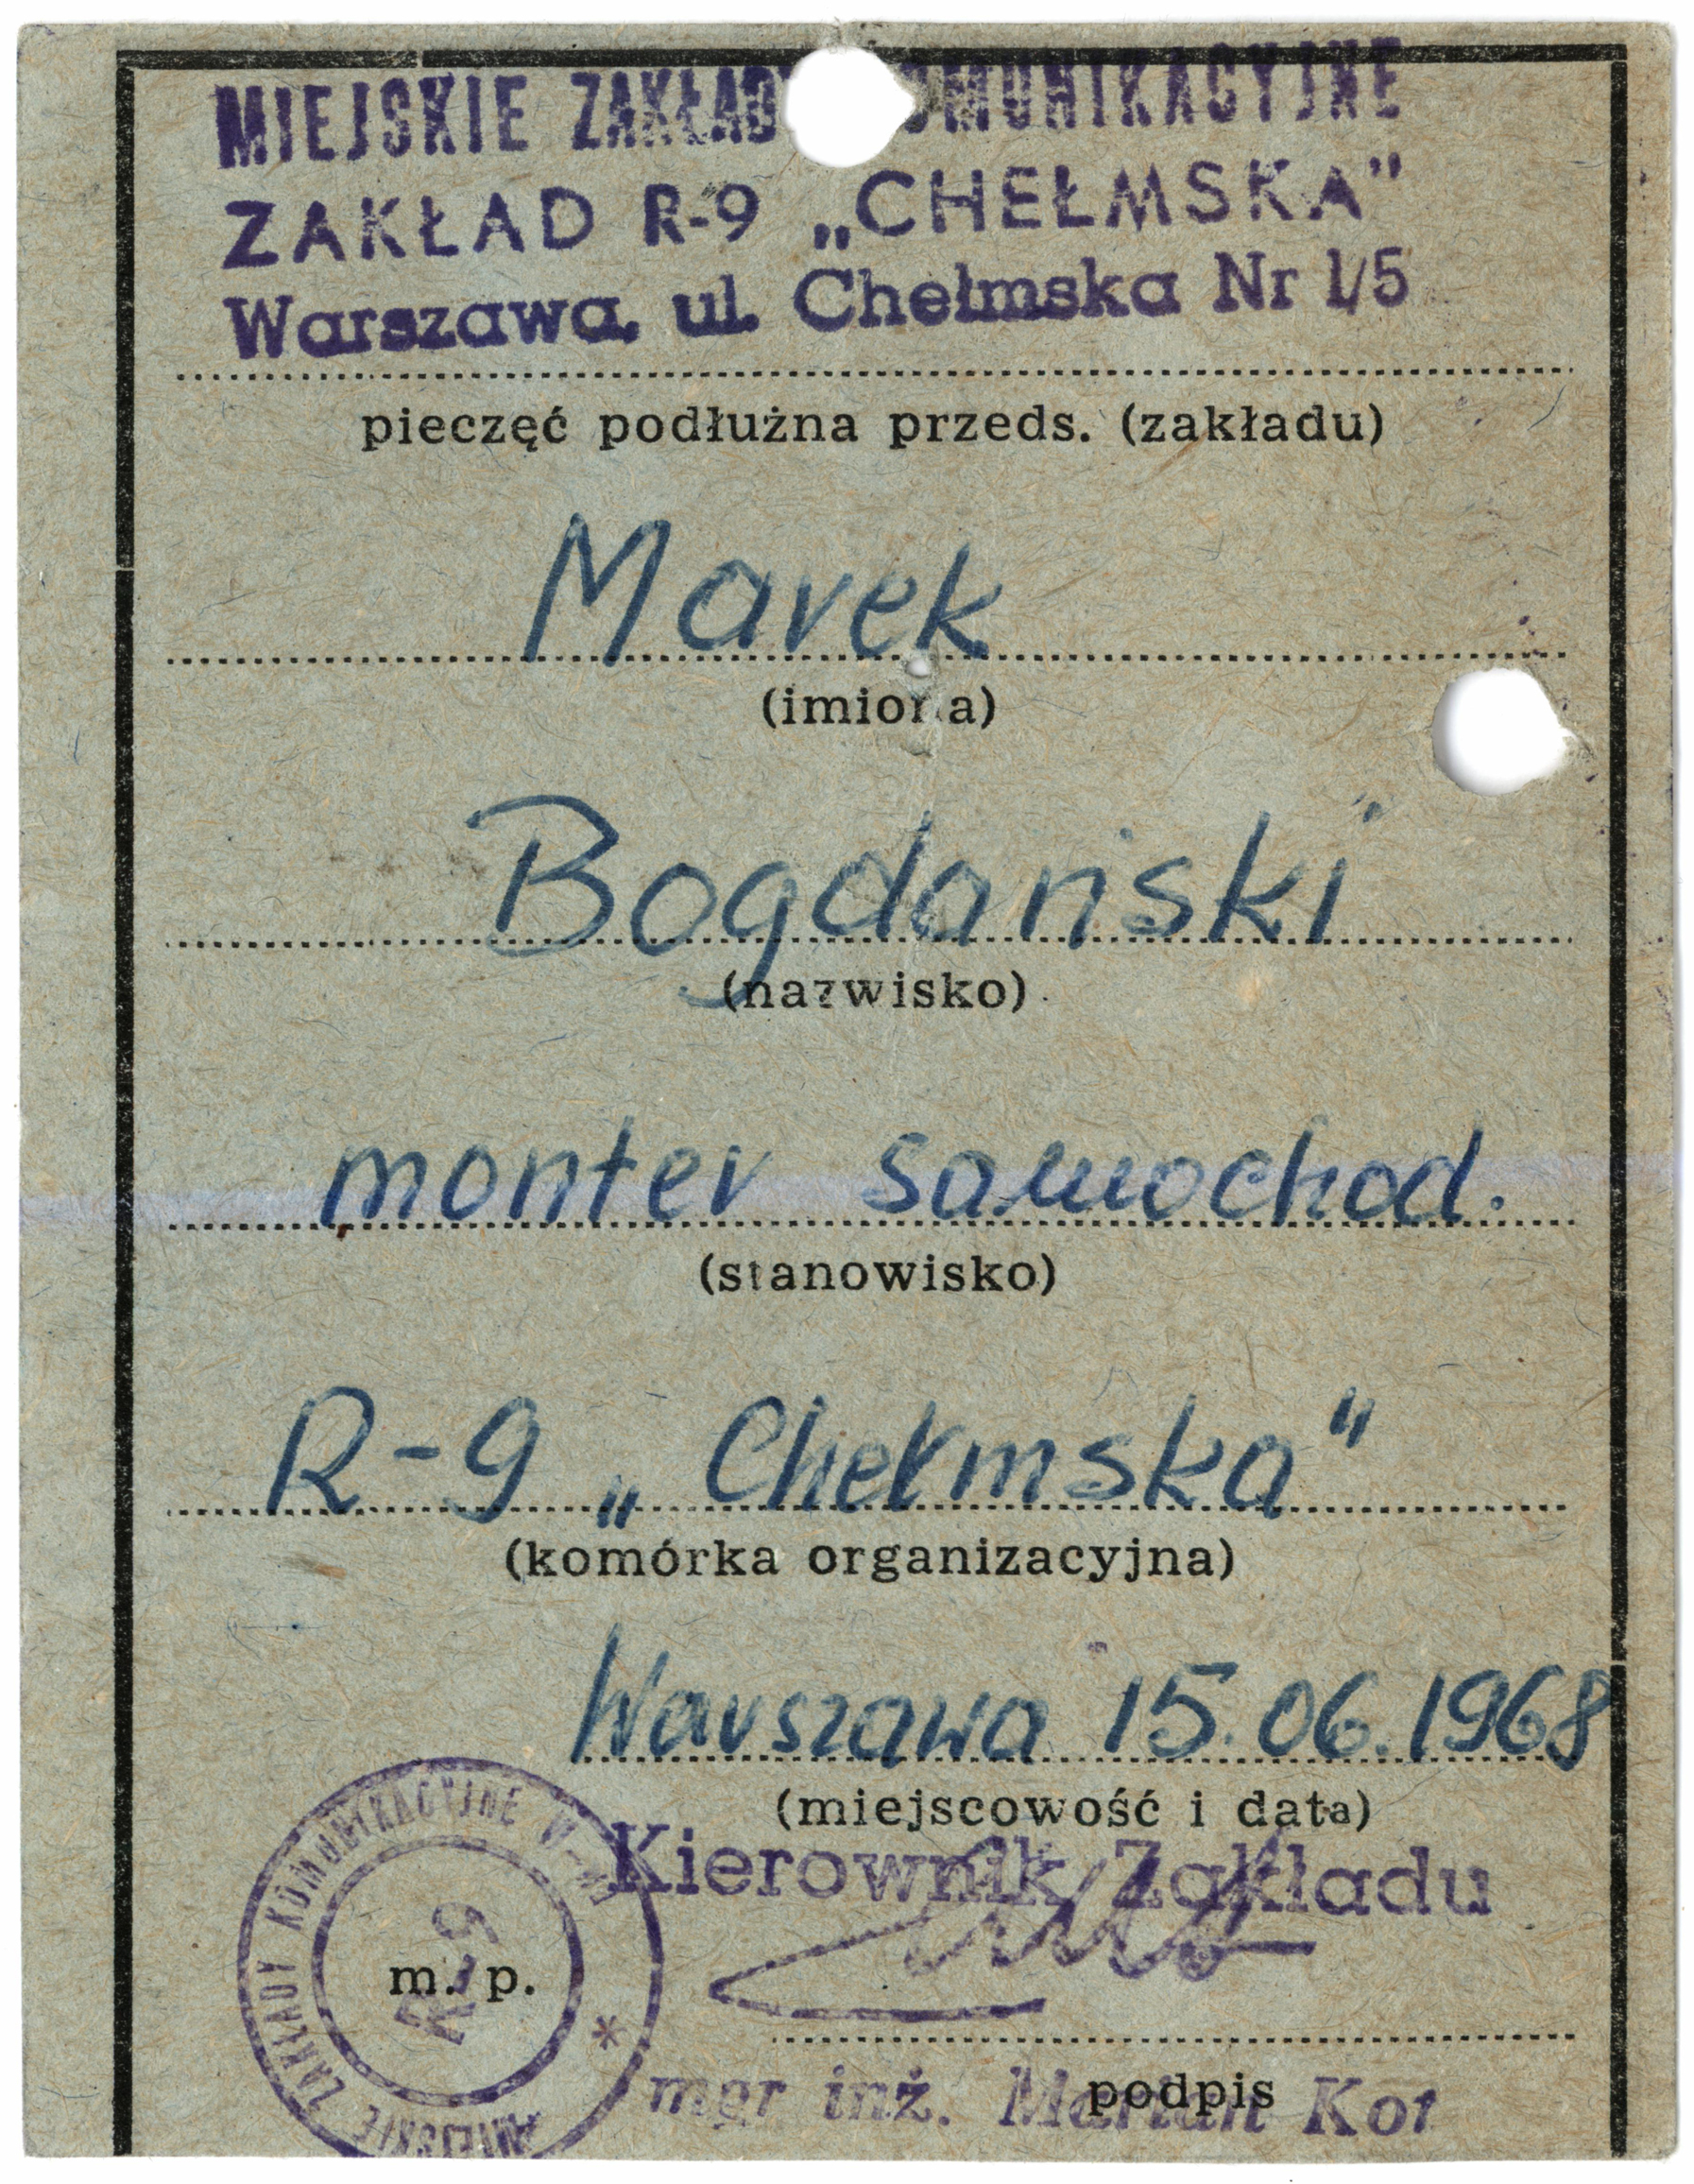 MIEJSKIE ZAKŁADY KOMUNIKACYJNE
ZAKŁAD R-9 „CHEŁMSKA”
Warszawa, ul. Chełmska Nr 1/5
pieczęć podłużna przeds. (zakładu)
Marek
(imiona)
Bogdański
(nazwisko)
monter samochod.
(stanowisko)
R-9 „Chełmska”
(komórka organizacyjna)
Warszawa 15.06.1968
(miejscowość i data)
Kierownik Zakładu
MIEJSKIE ZAKŁADY KOMUNIKACYJNE W-WA *
R-9
m. p.
podpis
mgr inż. Marian Kot